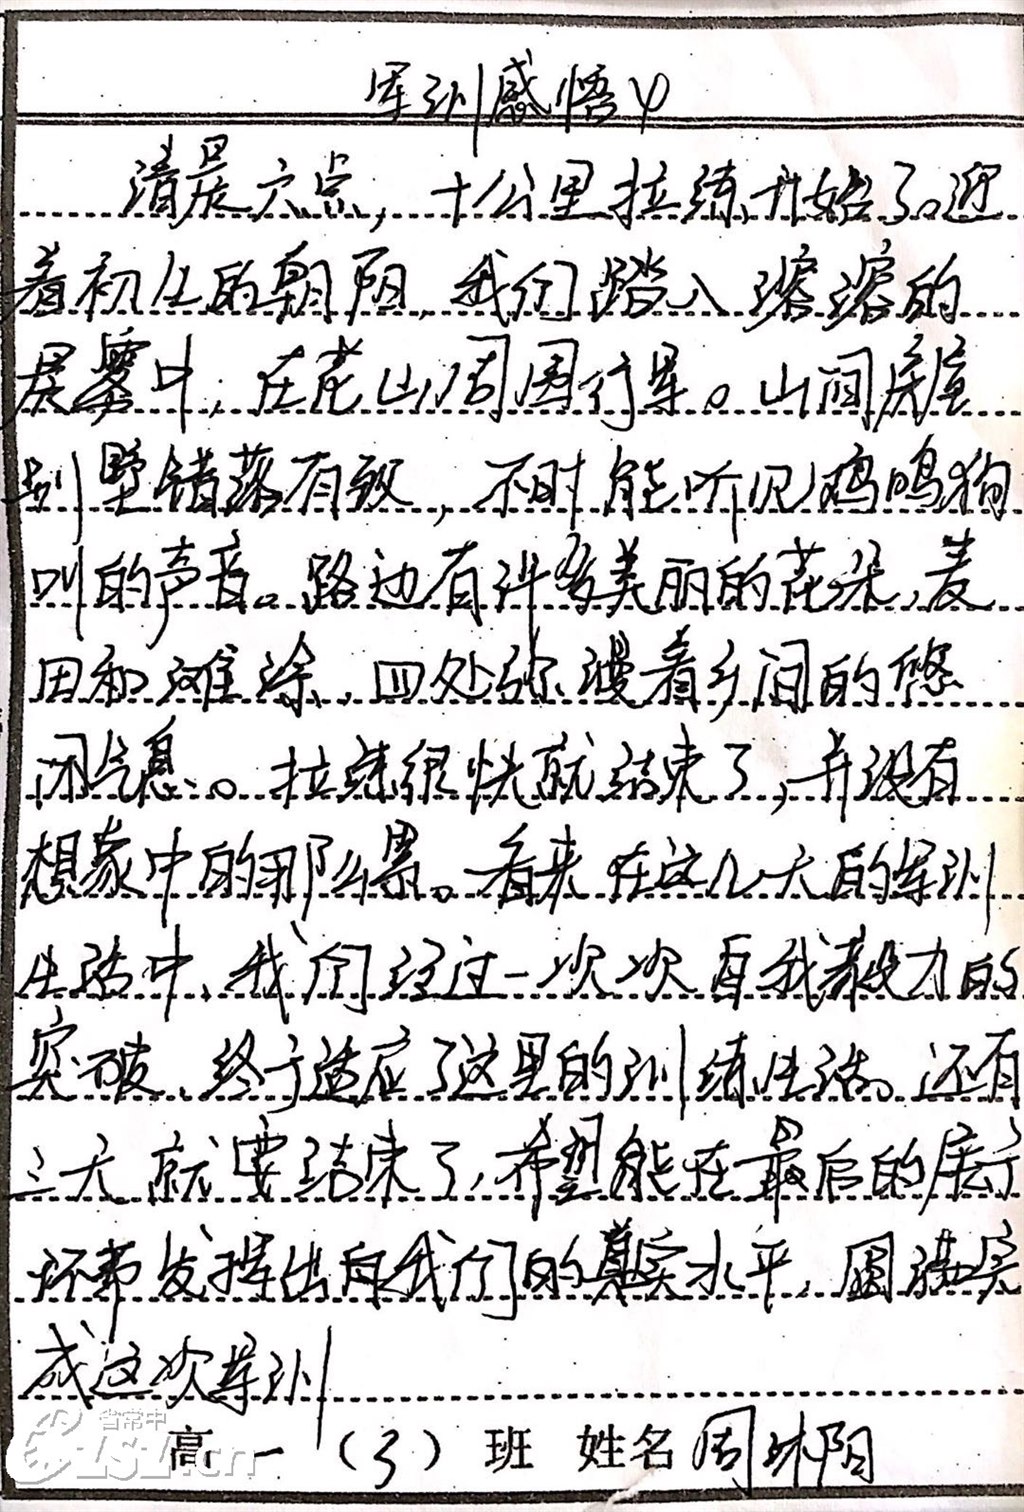 军训感悟4
清晨六点，十公里拉练开始了。迎
着初生的朝阳，我们踏入溶溶的
晨雾中，在茫山周围行军。山间房屋
别墅错落有致，不时能听见鸡鸣狗
叫的声音。路边有许多美丽的花朵，麦
田和滩涂，四处弥漫着乡间的悠
闲气息。拉练很快就结束了，并没有
想象中的那么累。看来在这几天的军训
生活中，我们经过一次次自我毅力的
突破，终于适应了这里的训练生活。还有
三天就要结束了，希望能在最后的展示
环节发挥出自我们的真实水平，圆满完
成这次军训
省常中
CZSZ.cn
高一（3）班 姓名周沐阳